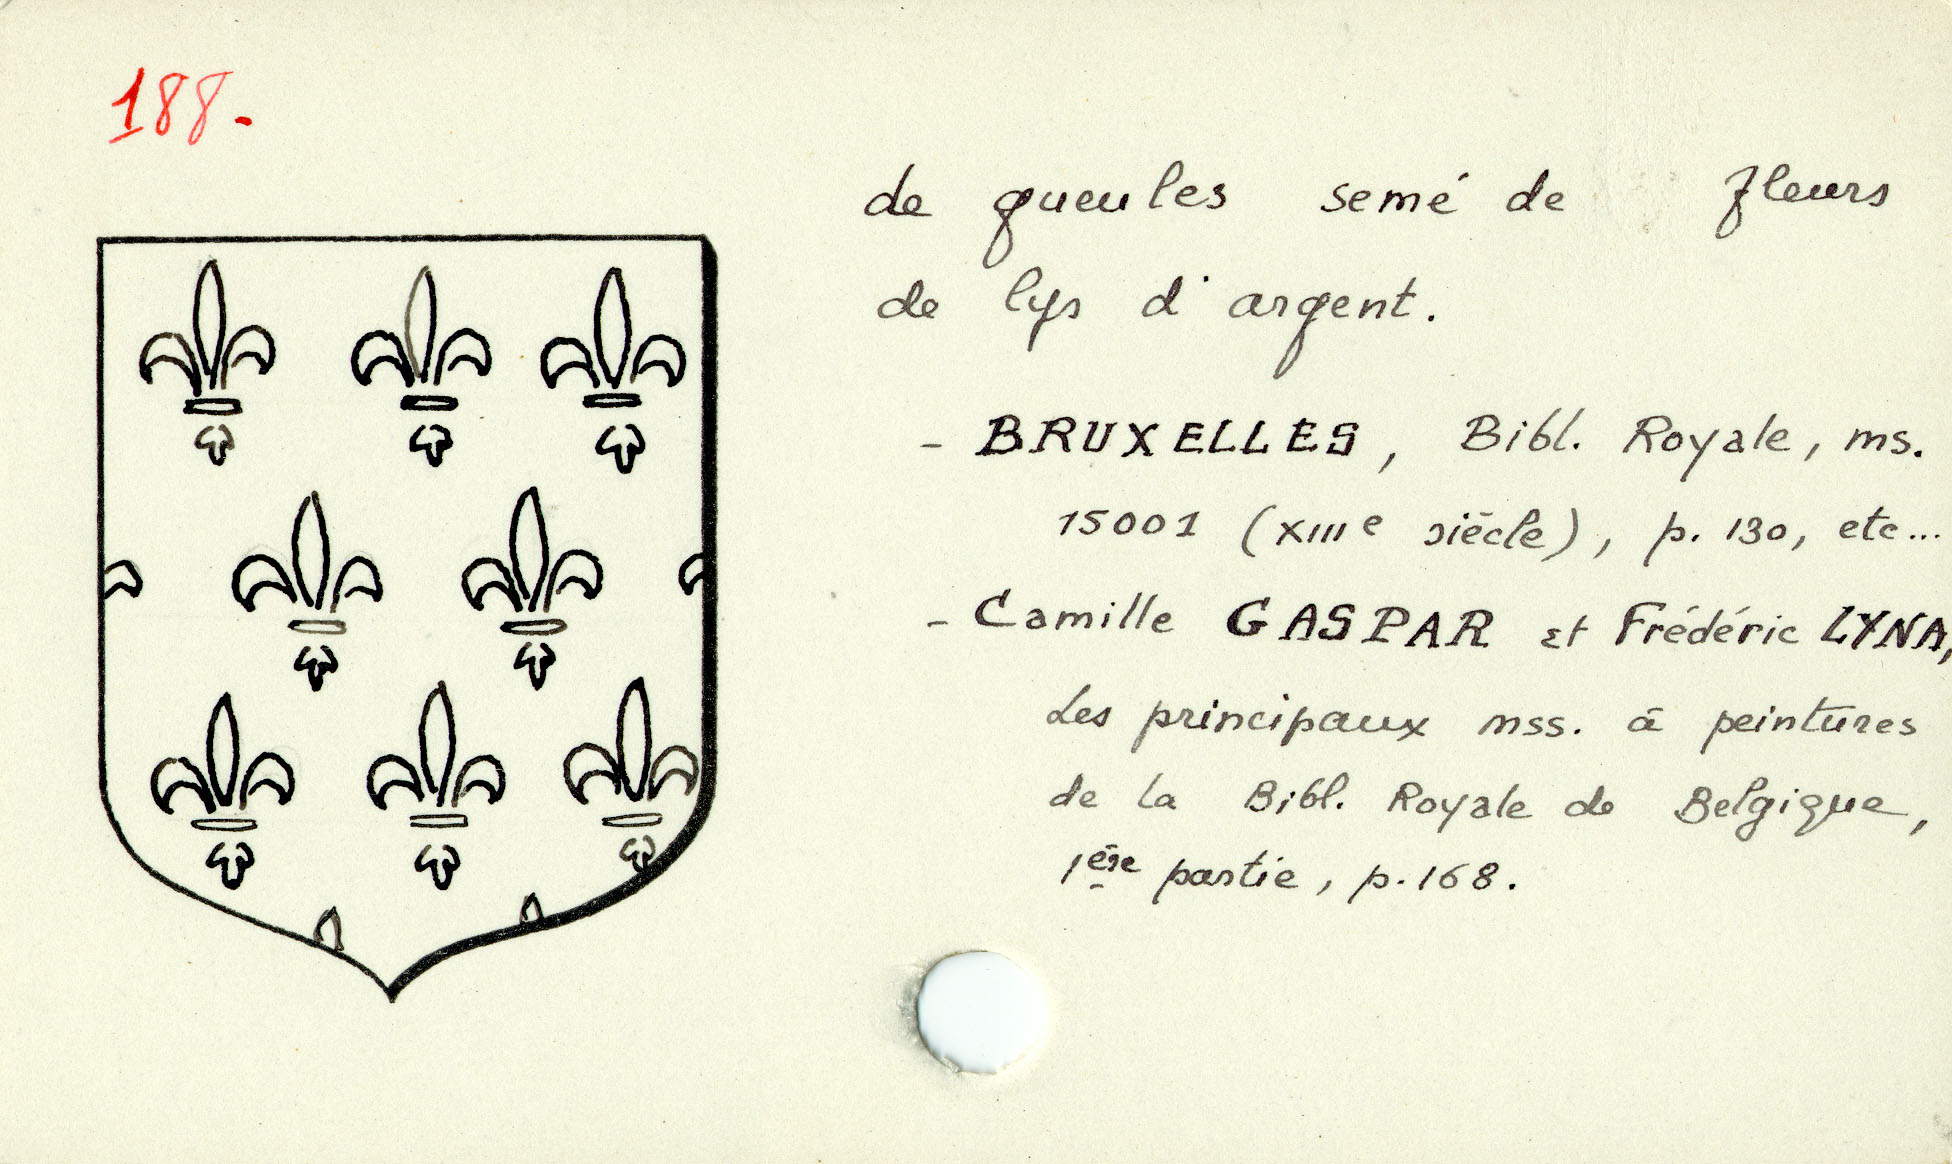 188.
de gueules semé de fleurs
de lys d'argent.
- BRUXELLES, Bibl. Royale, ms.
15001 (XIIIe siècle), p. 130, etc...
- Camille GASPAR et Frédéric LYNA,
Les principaux mss. à peintures
de la Bibl. Royale de Belgique,
1ère partie, p. 168.